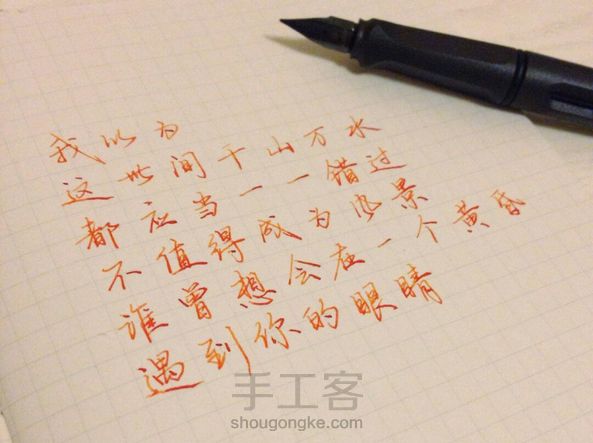 我以为
这世间千山万水
都应当一一错过
不值得成为风景
谁曾想会在一个黄昏
遇到你的眼睛
手工客
shougongke.com